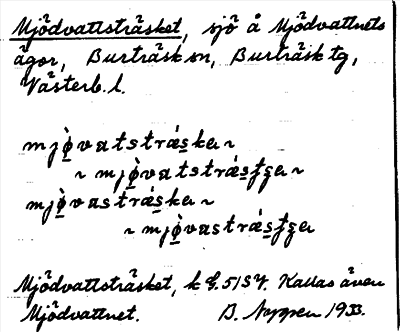 Mjödvattsträsket, sjö å Mjödvattnets
ägor, Burträsk sn, Burträsk tg,
Västerb. l.
mjø̀vatstrǻske~
~ mjø̀vatstrǻsʃge~
mjø̀vastrǻske~
~ mjø̀vastrǻsʃge
Mjödvattsträsket, k Kallas även
Mjödvattnet. B. Nygren 1933.